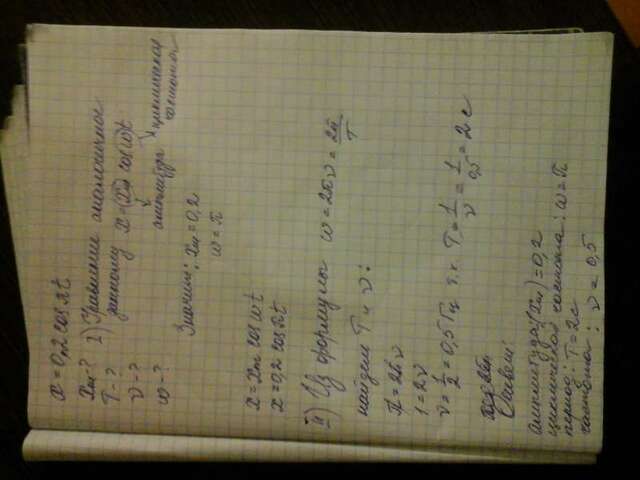 x = 0,2 cos πt
xм - ? I) Уравнение аналогичное
T - ? данному x = (xм) cos(ω)t
ν - ? амплитуда циклическая частота
ω - ?
Значит: xм = 0,2
ω = π
x = xм cos ωt
x = 0,2 cos πt
II) Из формулы ω = 2πν = 2π/T
найдем T и ν:
π = 2πν
1 = 2ν
ν = 1/2 = 0,5 Гц т.к. T = 1/ν = 1/0,5 = 2 с
Ответ:
Амплитуда (xм) = 0,2
циклическая частота: ω = π
период: T = 2с
частота: ν = 0,5